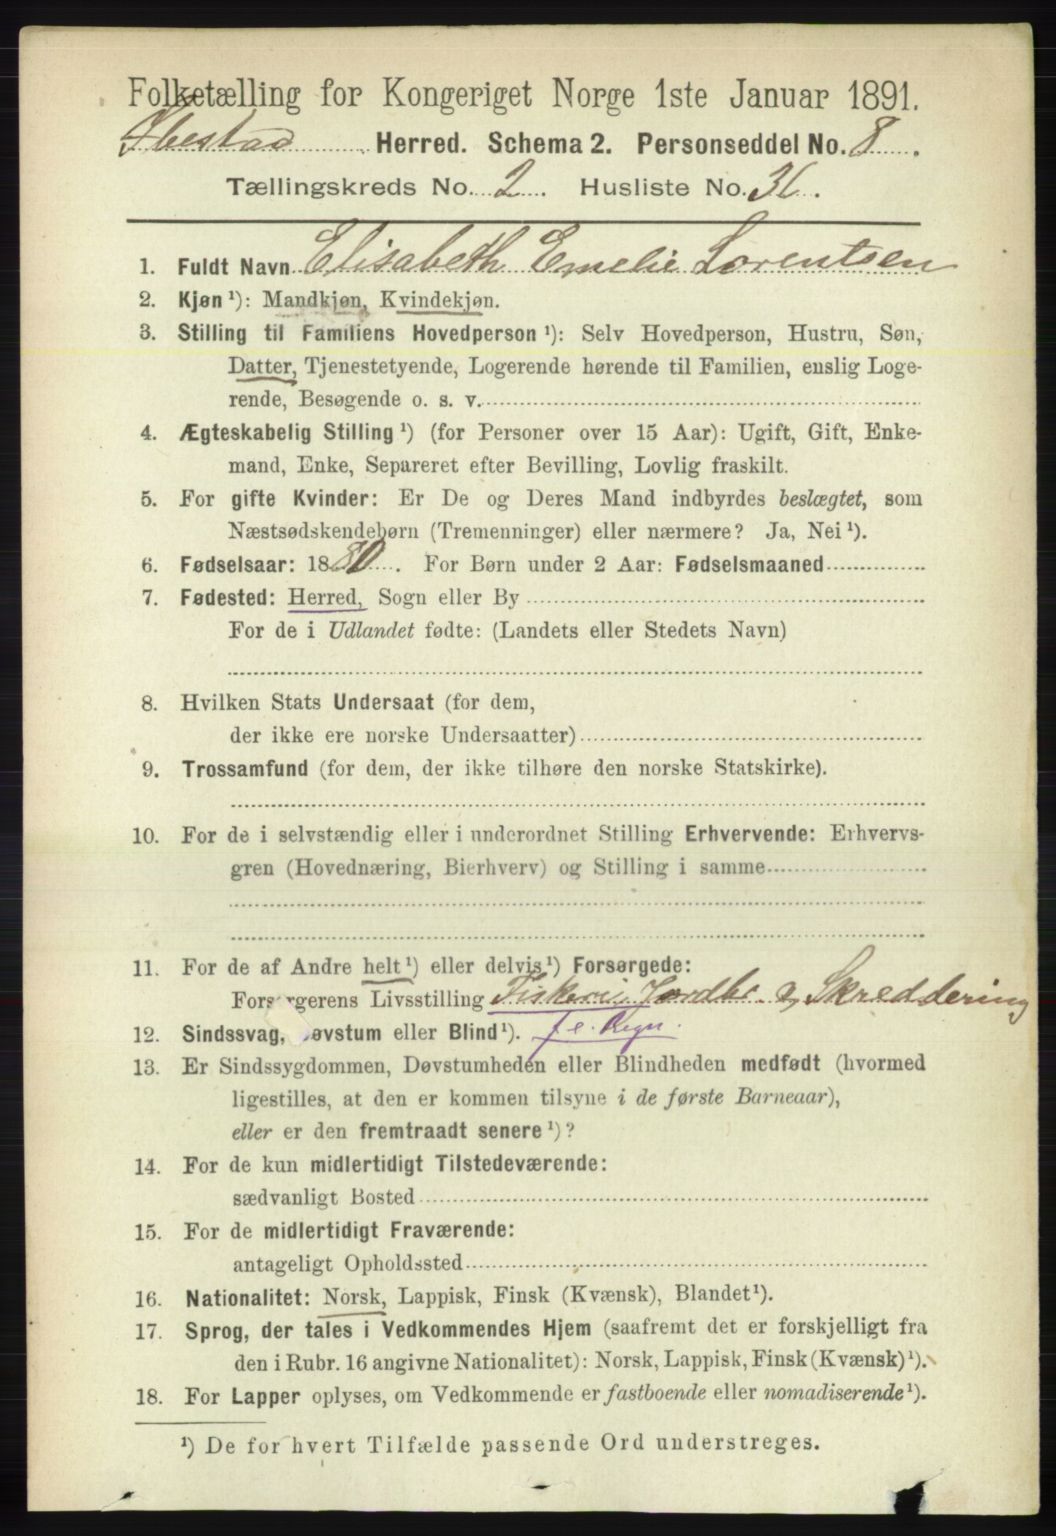 Folketælling for Kongeriget Norge 1ste Januar 1891.
Ibestad Herred. Schema 2. Personseddel No. 8.
Tællingskreds No. 2. Husliste No. 36.
1. Fuldt Navn Elisabeth Emelie Lorentsen
2. Kjøn ¹): Mandkjøn, Kvindekjøn.
3. Stilling til Familiens Hovedperson ¹): Selv Hovedperson, Hustru, Søn,
Datter, Tjenestetyende, Logerende hørende til Familien, enslig Loge-
rende, Besøgende o. s. v.
4. Ægteskabelig Stilling ¹) (for Personer over 15 Aar): Ugift, Gift, Enke-
mand, Enke, Separeret efter Bevilling, Lovlig fraskilt.
5. For gifte Kvinder: Er De og Deres Mand indbyrdes beslægtet, som
Næstsødskendebørn (Tremenninger) eller nærmere? Ja, Nei ¹).
6. Fødselsaar: 1880. For Børn under 2 Aar: Fødselsmaaned
7. Fødested: Herred, Sogn eller By
For de i Udlandet fødte: (Landets eller Stedets Navn)
8. Hvilken Stats Undersaat (for dem,
der ikke ere norske Undersaatter)
9. Trossamfund (for dem, der ikke tilhøre den norske Statskirke).
10. For de i selvstændig eller i underordnet Stilling Erhvervende: Erhvervs-
gren (Hovednæring, Bierhverv) og Stilling i samme
11. For de af Andre helt ¹) eller delvis ¹) Forsørgede:
Forsørgerens Livsstilling Fiskeri Jordbr. og Skreddering
12. Sindssvag, Døvstum eller Blind ¹). f. e. Regn.
13. Er Sindssygdommen, Døvstumheden eller Blindheden medfødt (hvormed
ligestilles, at den er kommen tilsyne i de første Barneaar),
eller er den fremtraadt senere ¹)?
14. For de kun midlertidigt Tilstedeværende:
sædvanligt Bosted
15. For de midlertidigt Fraværende:
antageligt Opholdssted
16. Nationalitet: Norsk, Lappisk, Finsk (Kvænsk), Blandet ¹).
17. Sprog, der tales i Vedkommendes Hjem (saafremt det er forskjelligt fra
den i Rubr. 16 angivne Nationalitet): Norsk, Lappisk, Finsk (Kvænsk) ¹).
18. For Lapper oplyses, om Vedkommende er fastboende eller nomadiserende ¹).
¹) De for hvert Tilfælde passende Ord understreges.